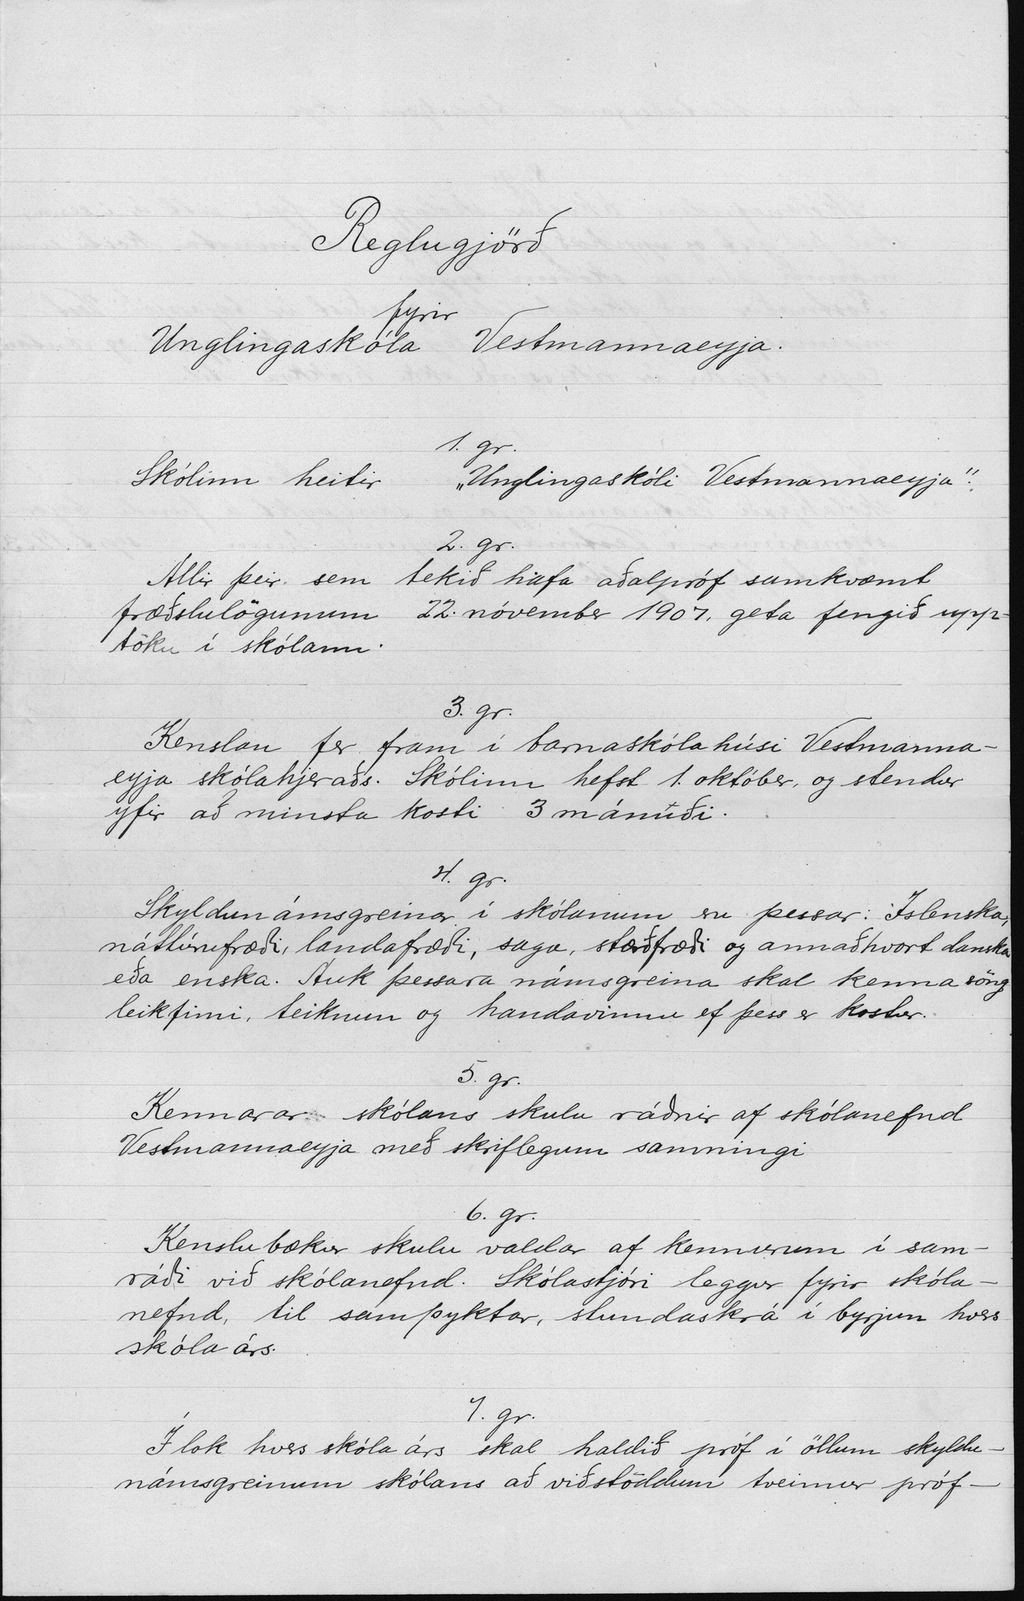 Reglugjörð
fyrir
Unglingaskóla Vestmannaeyja.
1. gr.
Skólinn heitir „Unglingaskóli Vestmannaeyja".
2. gr.
Allir þeir sem tekið hafa aðalpróf samkvæmt
fræðslulögunum 22. nóvember 1907, geta fengið upp-
töku í skólann.
3. gr.
Kenslan fer fram í barnaskólahúsi Vestmanna-
eyja skólahjeraðs. Skólinn hefst 1. október, og stendur
yfir að minsta kosti 3 mánuði.
4. gr.
Skyldunámsgreinar í skólanum eru þessar: Íslenska,
náttúrufræði, landafræði, saga, stærðfræði og annaðhvort danska
eða enska. Auk þessara námsgreina skal kenna söng
leikfimi, teiknun og handavinnu ef þess er kostur.
5. gr.
Kennarar skólans skulu ráðnir af skólanefnd
Vestmannaeyja með skriflegum samningi
6. gr.
Kenslubækur skulu valdar af kennurum í sam-
ráði við skólanefnd. Skólastjóri leggur fyrir skóla-
nefnd, til samþyktar, stundaskrá í byrjun hvers
skólaárs.
7. gr.
Í lok hvers skólaárs skal haldið próf í öllum skyldu-
námsgreinum skólans að viðstöddum tveimur próf-